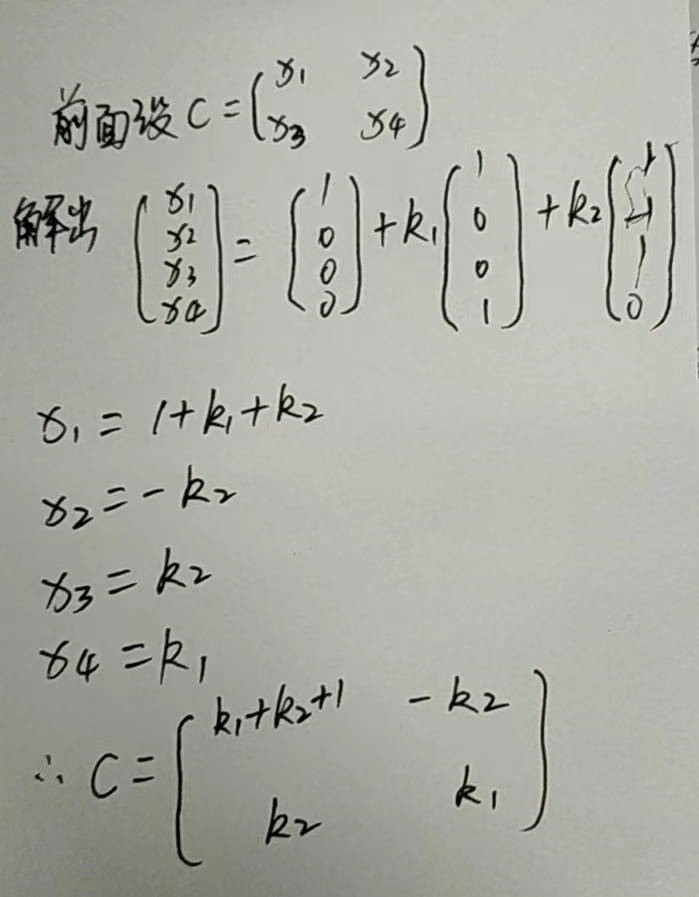 前面设 C = (x1 x2
x3 x4)
解出 (x1 x2 x3 x4) = (1 0 0 0) + k1 (1 0 0 1) + k2 (1 -1 1 0)
x1 = 1 + k1 + k2
x2 = - k2
x3 = k2
x4 = k1
∴ C = (k1 + k2 + 1 - k2
k2 k1)